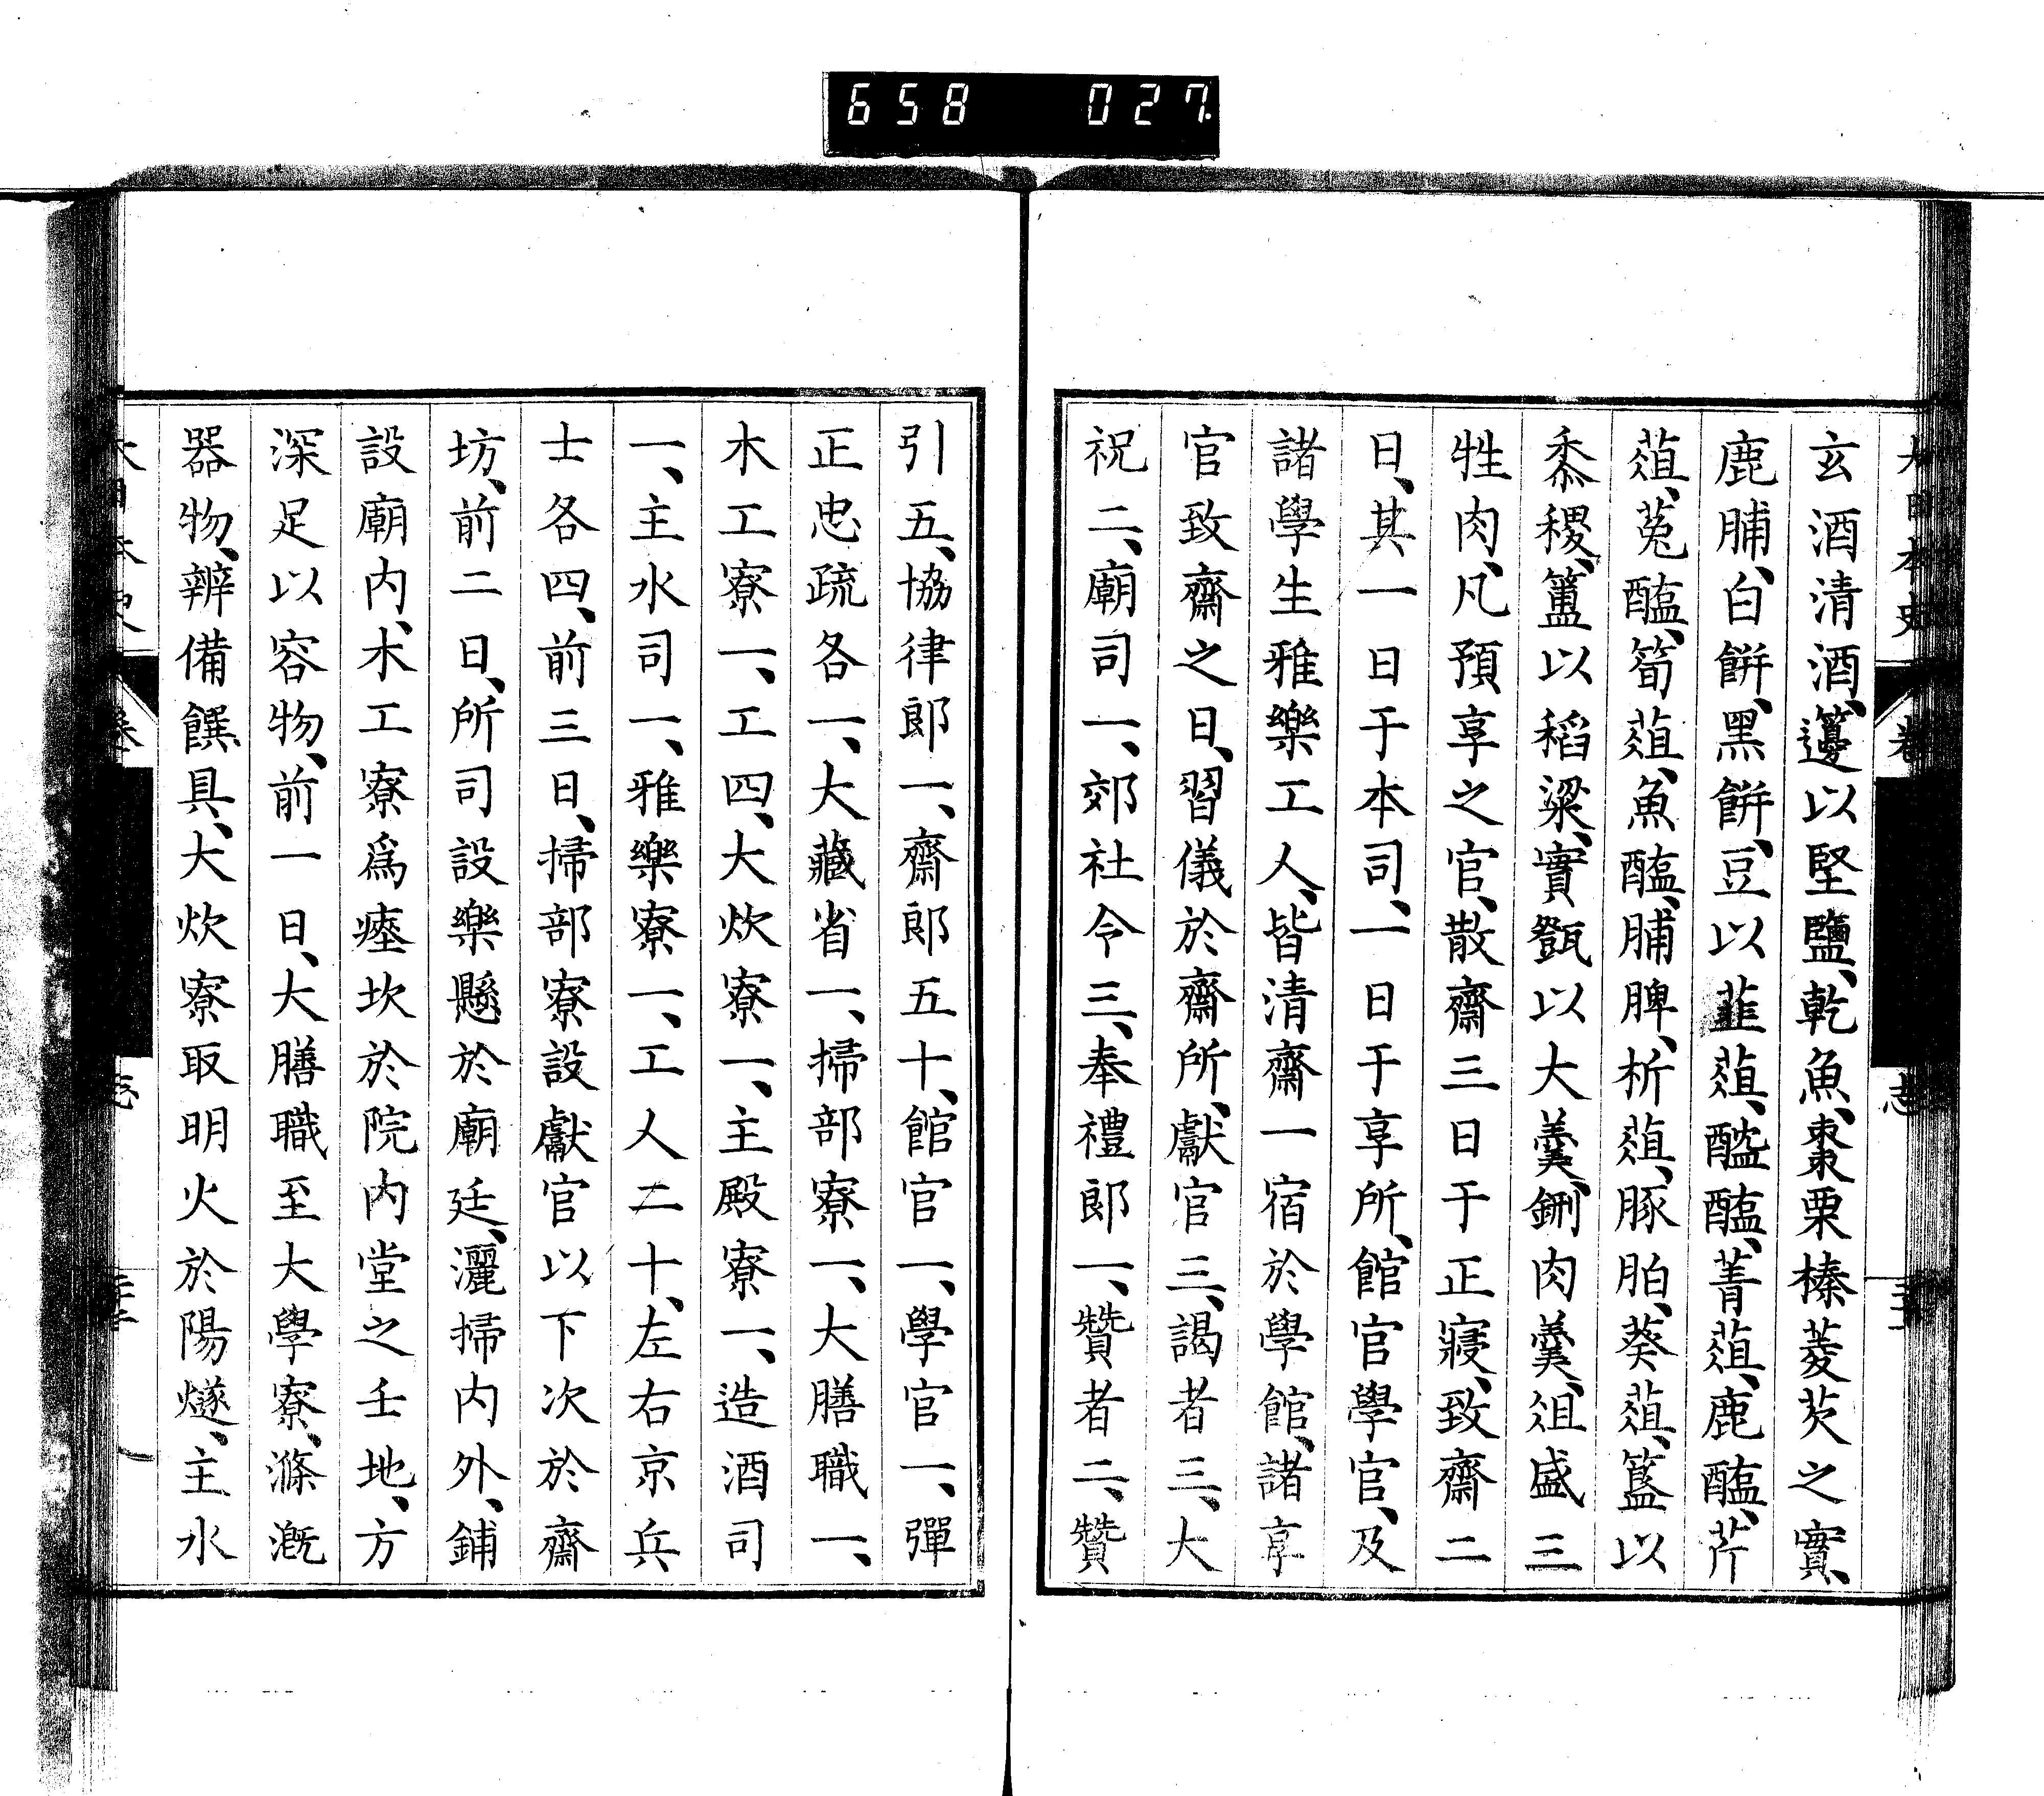 658 027
大日本史
玄酒清酒、籩以堅鹽、乾魚、棗栗榛菱芡之實、
鹿脯、白餠、黑餠、豆以韮葅、醓醢、菁葅、鹿醢、芹
葅、菟醢、筍葅、魚醢、脯脾、析葅、豚胉、葵葅、簋以
黍稷、簠以稻粱、實甑以大羹、鉶肉羹、俎盛三
牲肉、凡預享之官、散齋三日于正寢、致齋二
日、其一日于本司、一日于享所、館官學官、及
諸學生雅樂工人、皆清齋一宿於學館、諸享
官致齋之日、習儀於齋所、獻官三、謁者三、大
祝二、廟司一、郊社令三、奉禮郎一、贊者二、贊
引五、協律郎一、齋郎五十、館官一、學官一、彈
正忠疏各一、大藏省一、掃部寮一、大膳職一、
木工寮一、工四、大炊寮一、主殿寮一、造酒司
一、主水司一、雅樂寮一、工人二十、左右京兵
士各四、前三日、掃部寮設獻官以下次於齋
坊、前二日、所司設樂懸於廟廷、灑掃内外、鋪
設廟内、木工寮爲瘞坎於院内堂之壬地、方
深足以容物、前一日、大膳職至大學寮、滌漑
器物、辨備饌具、大炊寮取明火於陽燧、主水